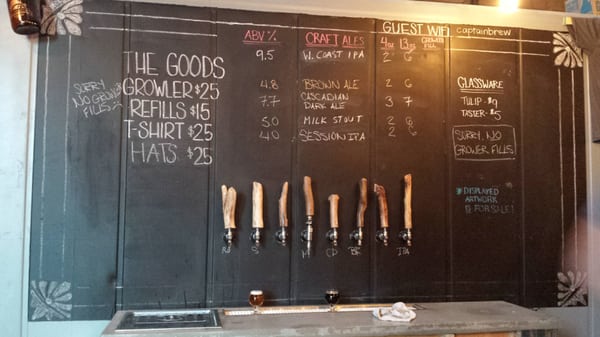 ABV %
CRAFT ALES
GUEST WIFI
captainbrew
4oz
13oz
GROWLER FILL
9.5
W. COAST IPA
2
6
THE GOODS
GROWLER $25
REFILLS $15
T-SHIRT $25
HATS $25
SORRY
NO GROWLER
FILLS
4.8
BROWN ALE
2
6
7.7
CASCADIAN
DARK ALE
3
7
5.0
MILK STOUT
2
6
4.0
SESSION IPA
2
6
GLASSWARE
TULIP - $9
TASTER - $5
SORRY, NO
GROWER FILLS
DISPLAYED
ARTWORK
IS FOR SALE!
S
M
CD
BR
IPA